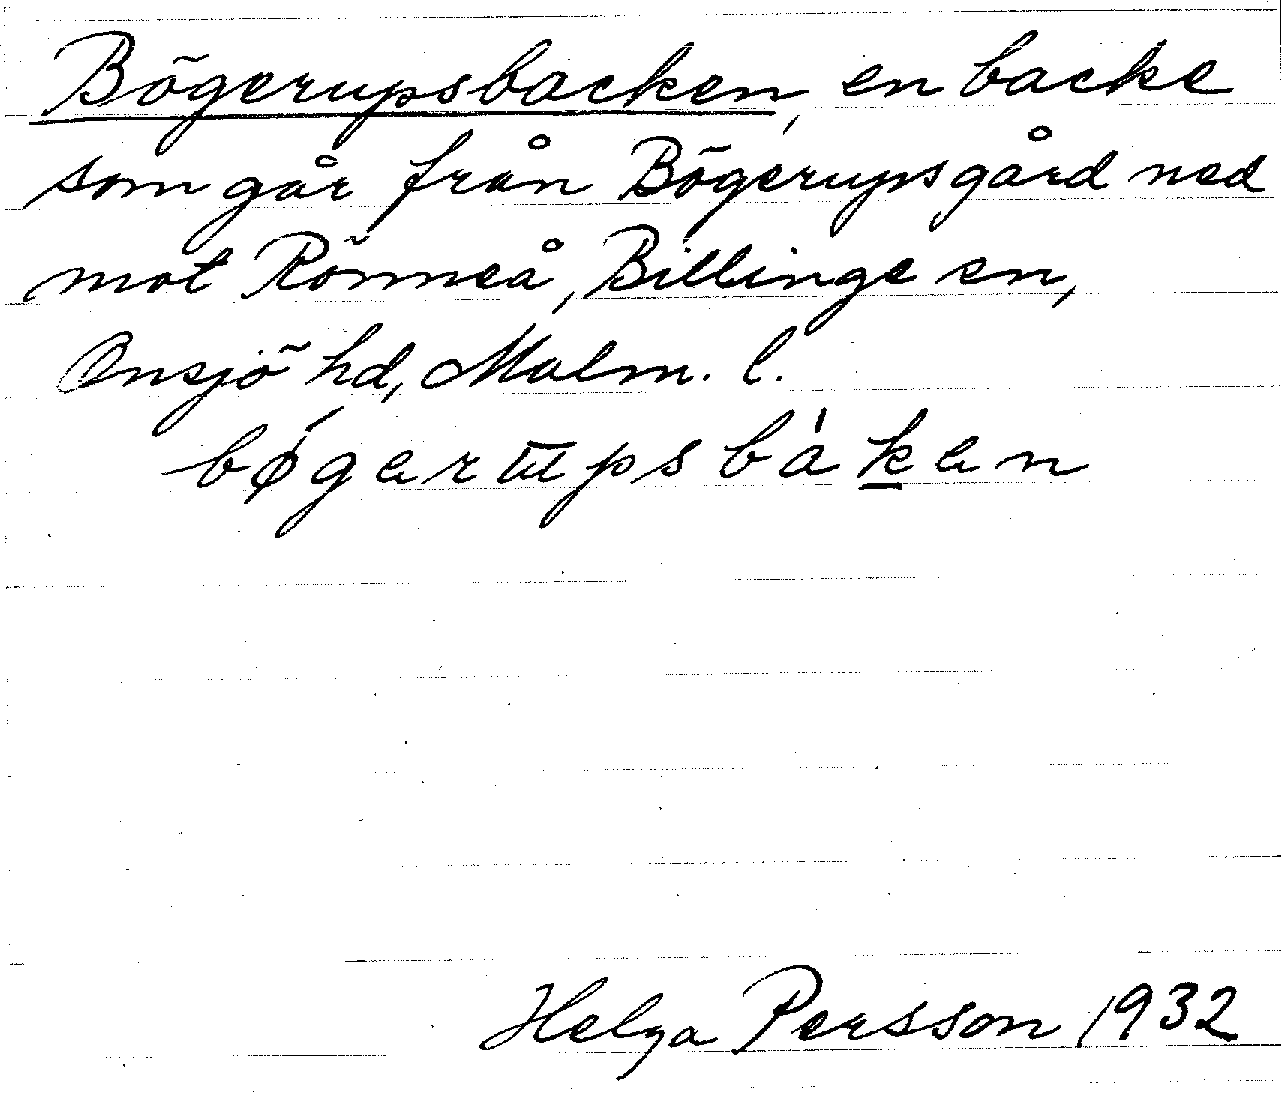 Bögerupsbacken, en backe
som går från Bögerupsgård ned
mot Rönneå, Billinge sn,
Onsjö hd, Malm. l.
bøgerupsbaken
Helga Persson 1932